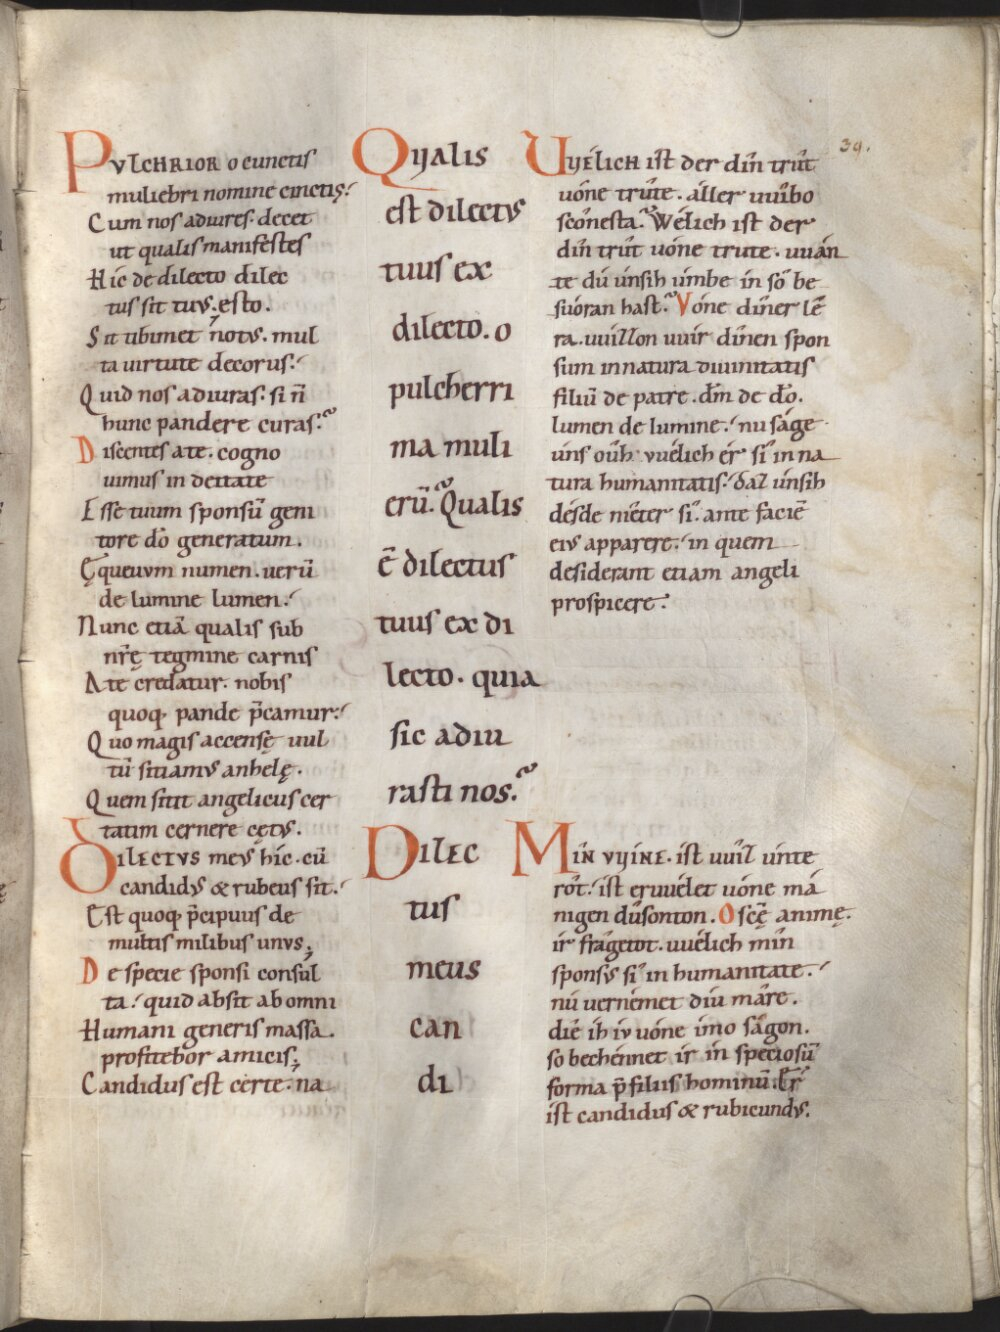 39.
PVLCHRIOR o cunctis
muliebri nomine cinctis?
Cum nos adiures. decet
ut qualis manifestes
Hic de dilecto dilec
tus sit tuus. esto.
Sit tibimet n̄otus. mul
ta virtute decorus.
Quid nos adiuras. si n̄
hunc pandere curas?
Discentes a te. cogno
uimus in deitate
Esse tuum sponsū geni
tore dō generatum.
Ęqueuum numen. uerū
de lumine lumen.
Nunc etiā qualis sub
nr̄ę tegmine carnis
A te credatur. nobis
quoq; pande p̄camur.
Quo magis accensę uul
tū sitiamus anhelę.
Quem sitit angelicus cer
tatim cernere cętus.
DILECTVS meus hic. cū
candidus & rubeus sit.
Est quoq; p̄cipuus de
multis milibus unus;
De specie sponsi consul
ta. quid absit ab omni
Humani generis massa.
profitebor amicis;
Candidus est certe. na
QVALIS
est dilectus
tuus ex
dilecto. o
pulcherri
ma muli
erū? Qualis
ē dilectus
tuus ex di
lecto. quia
sic adiu
rasti nos?
DILEC
tus
meus
can
di
VVÉLICH ist der dîn trût
uóne trûte. áller uuîbo
scônesta? Wélich ist der
dîn trût uóne trute. uuán
te dû únsih úmbe ín sô be
suóran hast? Vóne dîner lē
ra. uuillon uuir dînen spon
sum in natura diuinitatis
filiū de patre. dm̄ de dō.
lumen de lumine. nu ságe
úns oûh vuélich ér sî in na
tura humanitatis. dáz únsih
désde nîeter sî. ante faciē
eius apparere. in quem
desiderant etiam angeli
prospicere.
MIN VVINE. ist uuîz únte
rôt. ist eruuélet uóne má
nigen dûsonton. O scę animę.
ir frágetot. uuélich mîn
sponsus sî in humanitate.
nú uernémet diu máre.
diê íh iv uóne ímo ságon.
so bechénnet ír ín speciosū
forma p̄ filiis hominū. Ér
ist candidus & rubicundus.